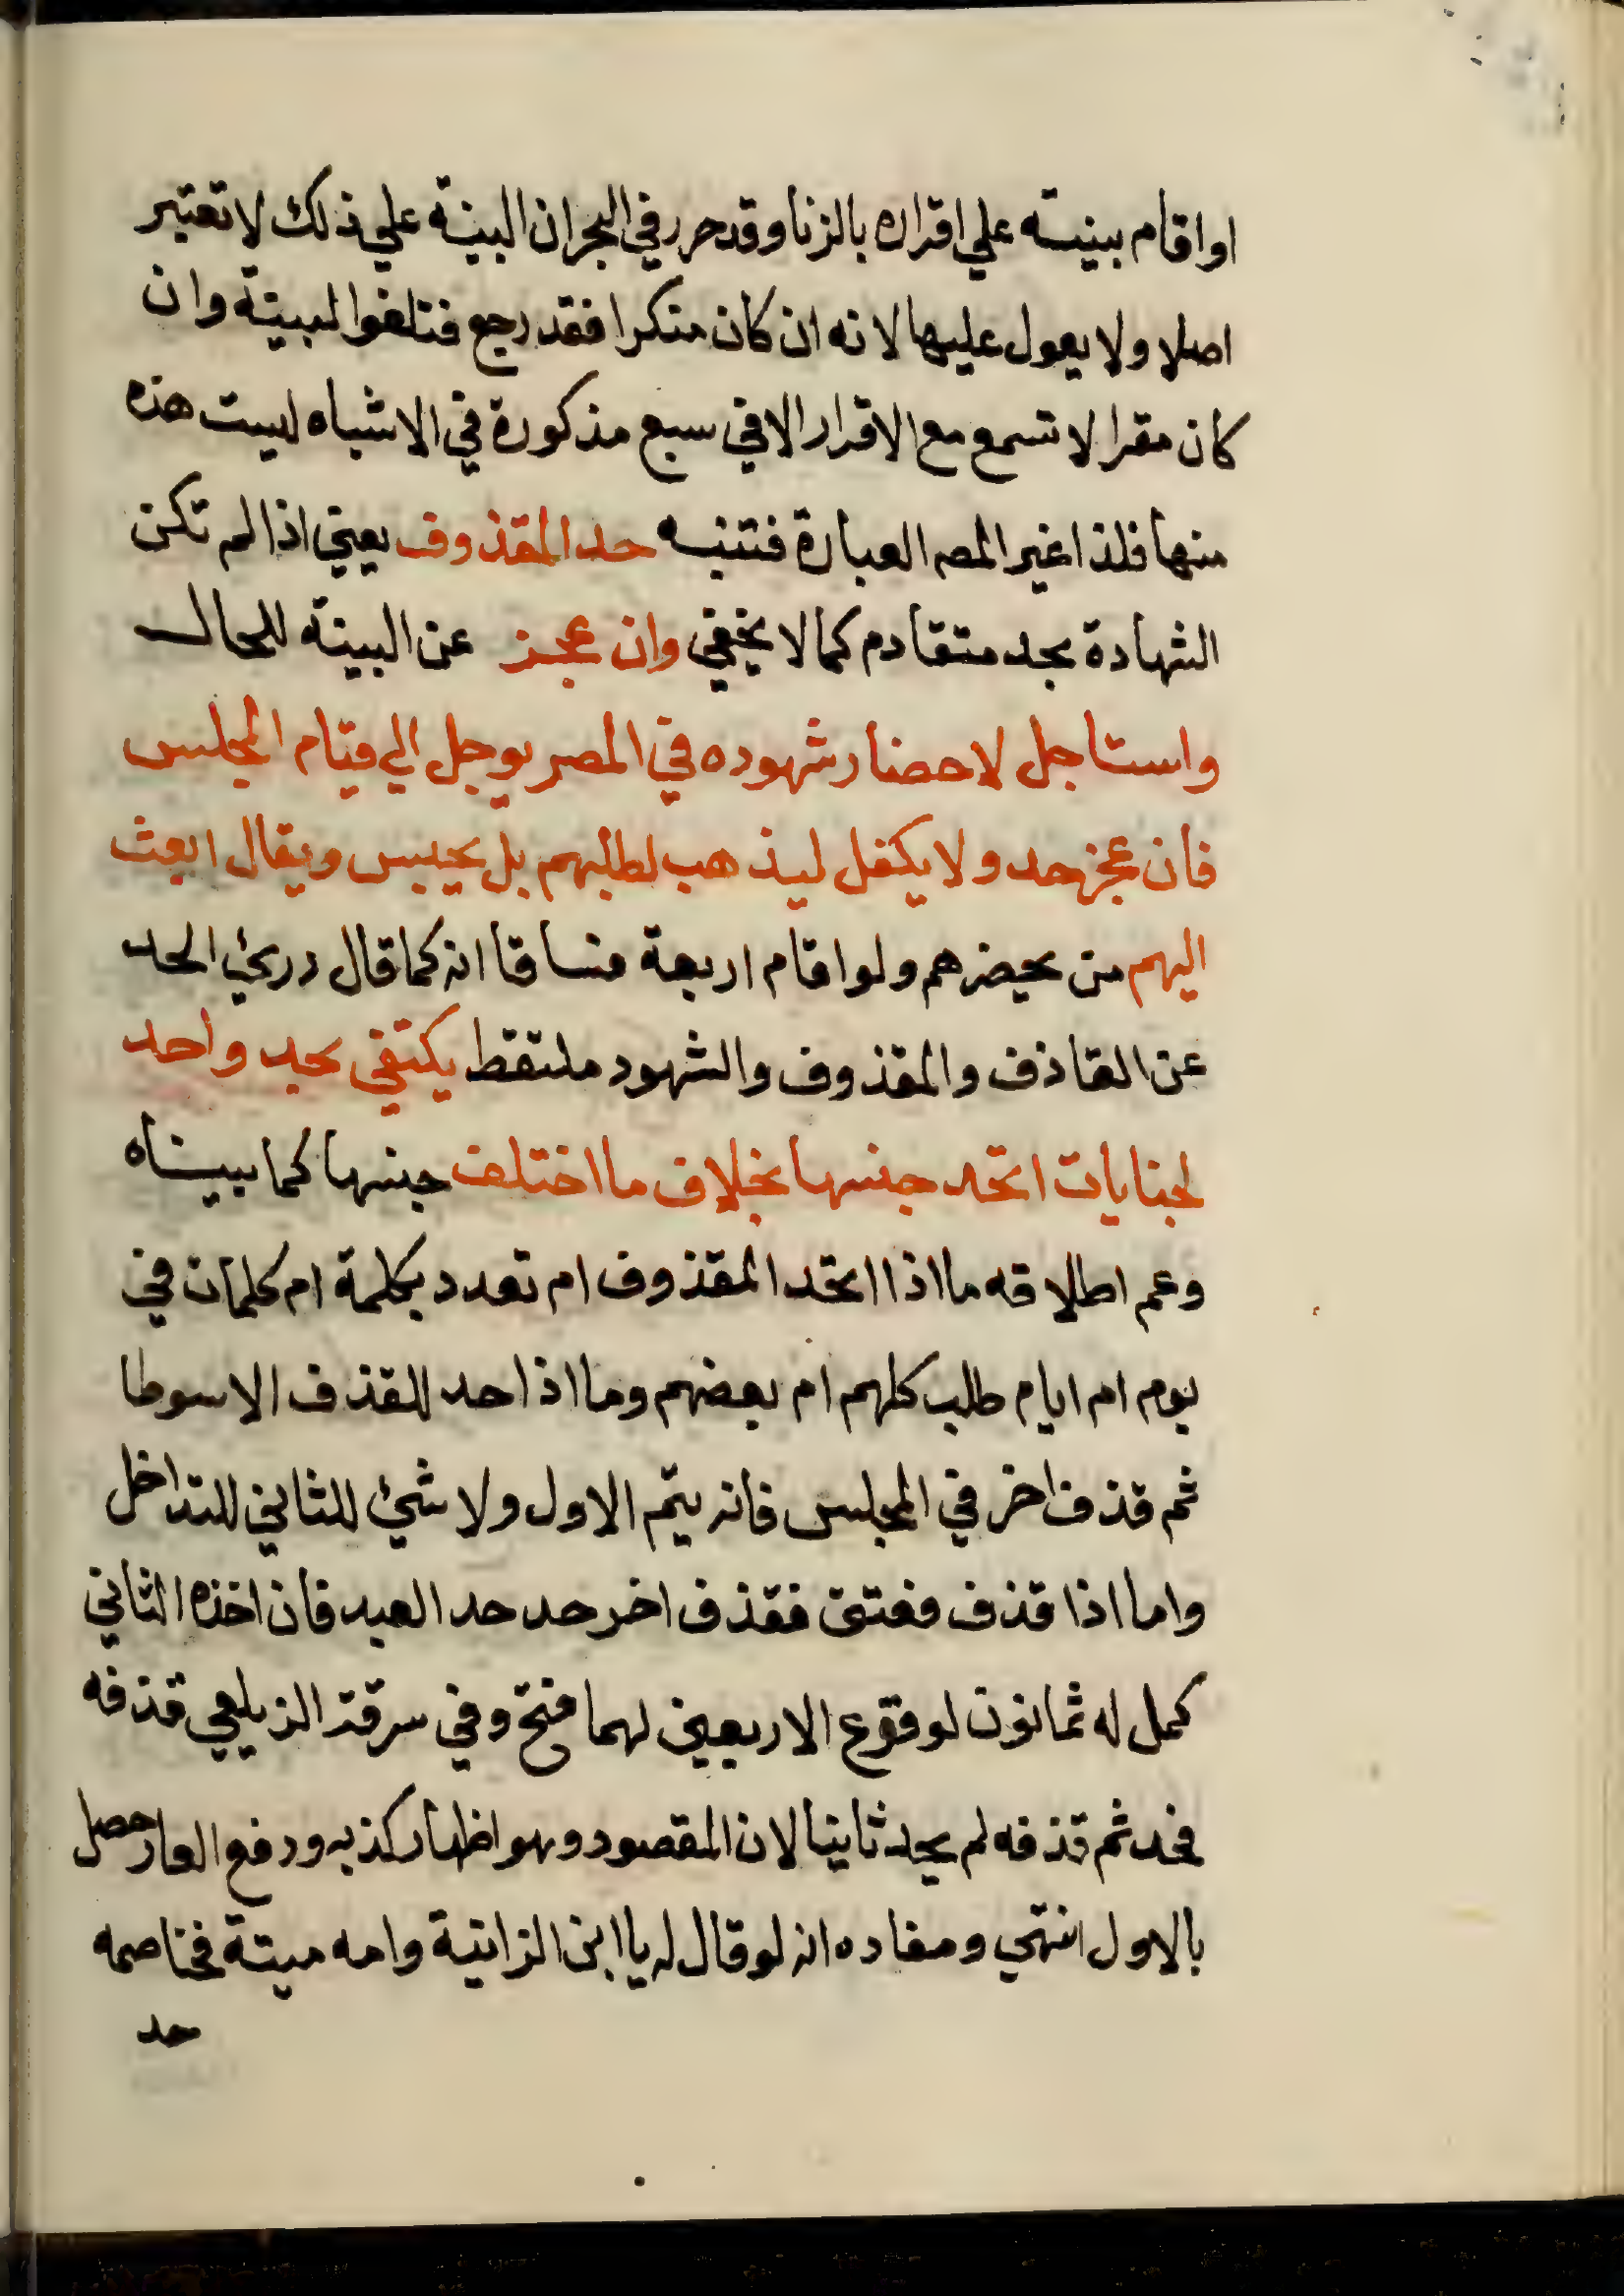 او اقام بينته علي اقراره بالزنا وقد حرر في البحر ان البينة علي ذلك لا تعتبر
اصلا ولا يعول عليها لانه ان كان منكرا فقد رجع فتلغوا لبينة وان
كان مقرا لا تسمع مع الاقرار الا في سبع مذكورة في الاشباه ليست هذه
منها فلذا غير المصـ العبارة فتنبه حد المقذوف يعني اذا لم تكن
الشهادة بحد متقادم كما لا يخفي وان عجز عن البينة للحال
واستاجل لاحضار شهوده في المصر يوجل الي قيام المجلس
فان عجز حد ولا يكفل ليذهب لطلبهم بل يحبس ويقال ابعث
اليهم من يحضرهم ولو اقام اربعة فساقا انه كما قال درئ الحد
عن القاذف والمقذوف والشهود ملتقط يكتفي بحد واحد
لجنايات اتحد جنسها بخلاف ما اختلف جنسها كما بيناه
وعم اطلاقه ما اذا اتحد المقذوف ام تعدد بكلمة ام كلمات في
يوم ام ايام طلب كلهم ام بعضهم وما اذا حد للقذف الا سوطا
ثم قذف اخر في المجلس فانه يتم الاول ولا شئ للثاني للتداخل
واما اذا قذف فعتق فقذف اخر حد حد العبد فان اخذه الثاني
كمل له ثمانون لوقوع الاربعين لهما فتح وفي سرقة الزيلعي قذفه
فحد ثم قذفه لم يحد ثانيا لان المقصود وهو اظهار كذبه ودفع العار حصل
بالاول انتهي ومفاده انه لو قال له يا ابن الزانية وامه ميتة فخاصمه
حد